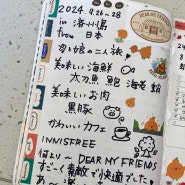 2024.9.26-28
in 済州島
from 日本
母と娘の二人旅
美味しい海鮮
太刀魚 鮑 海老
美味しいお肉
黒豚
かわいいカフェ
INNISFREE
何より〜 DEAR MY FRIENDS
すごーく素敵で快適でした
DEAR MY FRIENDS